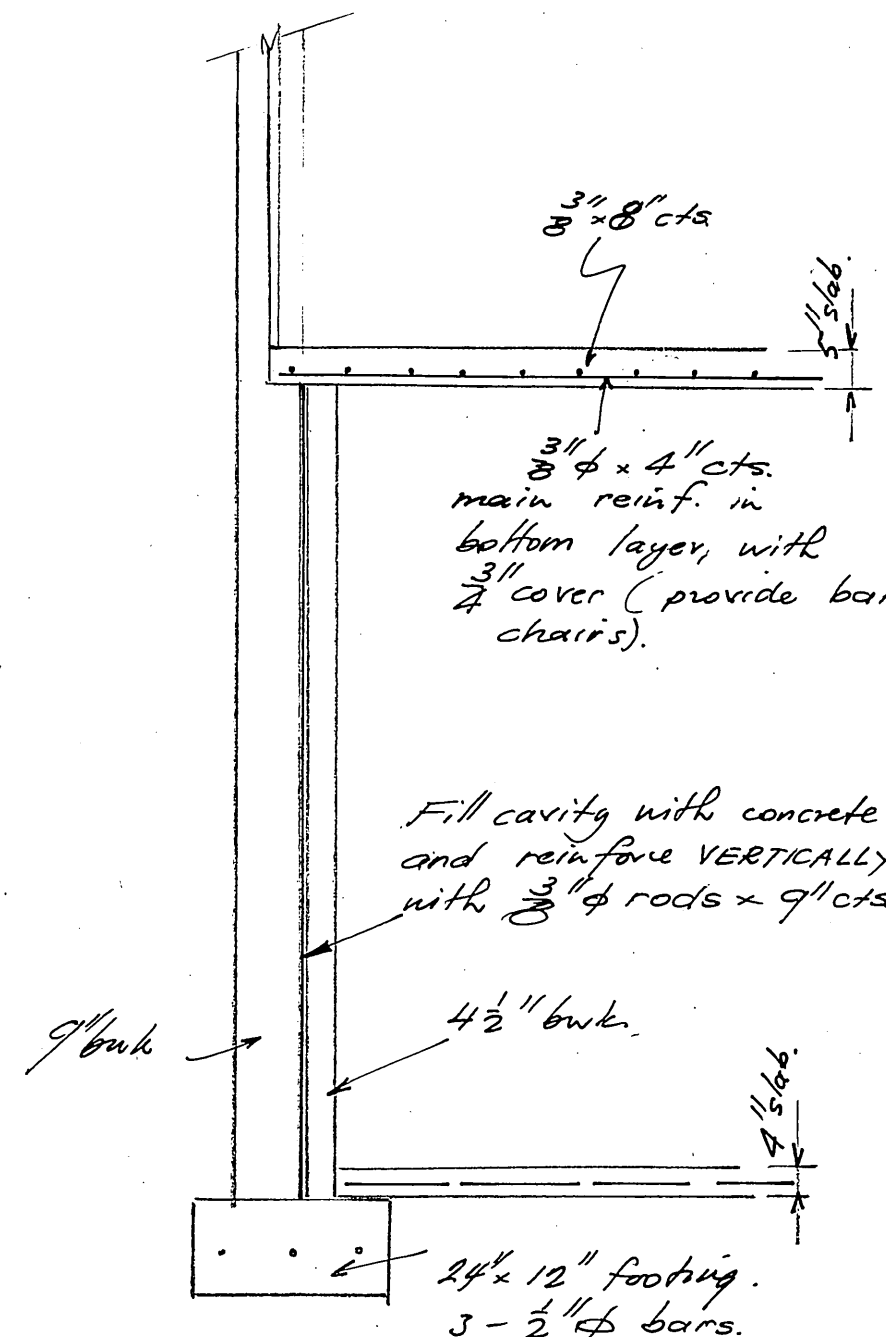 3/8" x 8" cts.
5" slab.
3/8" φ x 4" cts.
main reinf. in
bottom layer, with
3/4" cover (provide bar
chairs).
Fill cavity with concrete
and reinforce VERTICALLY
with 3/8" φ rods x 9" cts
9" bwk
4 1/2" bwk.
4" slab.
24" x 12" footing.
3 - 1/2" φ bars.